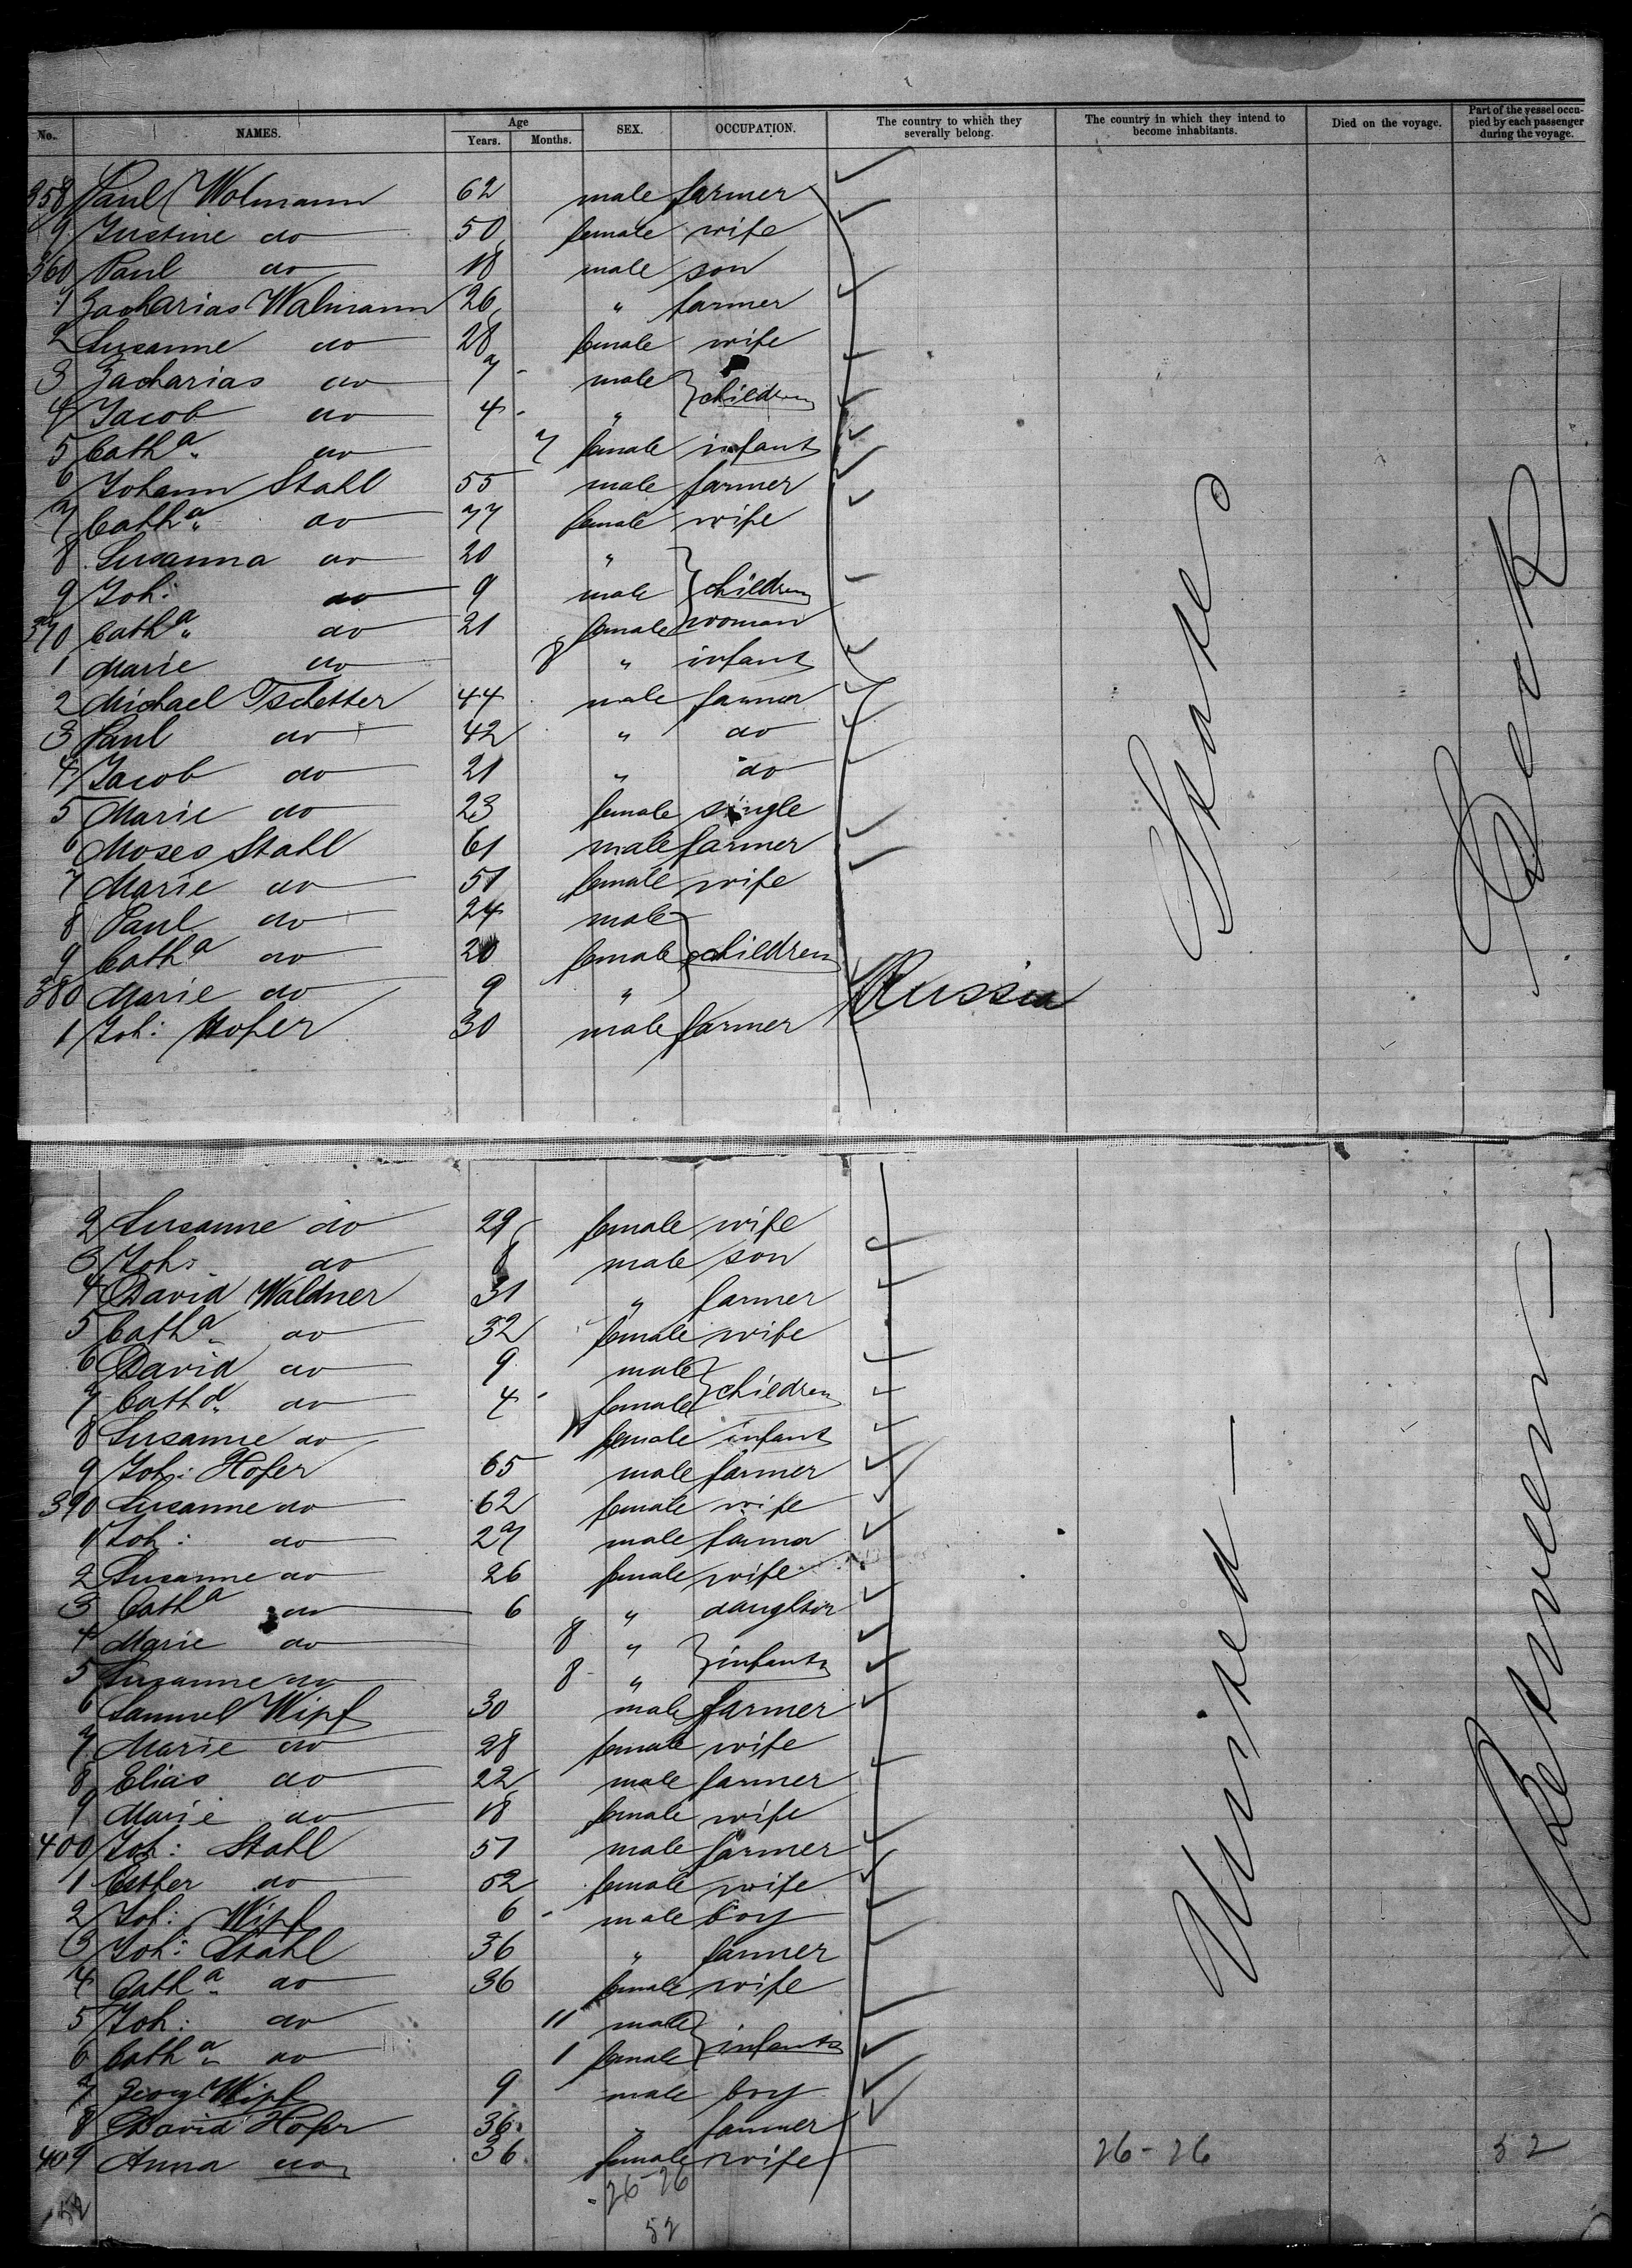 No. NAMES. Age Years. Months. SEX. OCCUPATION. The country to which they severally belong. The country in which they intend to become inhabitants. Died on the voyage. Part of the vessel occupied by each passenger during the voyage.
358 Paul Wolmann 62 male farmer
9 Justine do 50 female wife
360 Paul do 18 male son
1 Zacharias Walmann 26 " farmer
2 Susanne do 28 female wife
3 Zacharias do 7 male
4 Jacob do 4 " children
5 Catha do 7 female infant
6 Johann Stahl 55 male farmer
7 Catha do 77 female wife
8 Susanna do 20 "
9 Joh: do 9 male children
370 Catha do 21 female woman
1 Marie do 8 " infant
2 Michael Tschetter 44 male farmer
3 Paul do 42 " do
4 Jacob do 21 " do
5 Marie do 23 female single
6 Moses Stahl 61 male farmer
7 Marie do 51 female wife
8 Paul do 24 male
9 Catha do 20 female children
380 Marie do 9 "
1 Joh: Hofer 30 male farmer Russia
2 Susanne do 29 female wife
3 Joh: do 8 male son
4 David Waldner 31 " farmer
5 Catha do 32 female wife
6 David do 9 male
7 Catha do 4 female children
8 Susanne do female infant
9 Joh: Hofer 65 male farmer
390 Susanne do 62 female wife
1 Joh: do 27 male farmer
2 Susanne do 26 female wife
3 Catha do 6 " daughter
4 Marie do 8 "
5 Susanne do 8 " infants
6 Samuel Wipf 30 male farmer
7 Marie do 28 female wife
8 Elias do 22 male farmer
9 Marie do 18 female wife
400 Joh: Stahl 51 male farmer
1 Esther do 52 female wife
2 Joh: Wipf 6 male boy
3 Joh: Stahl 36 " farmer
4 Catha do 36 female wife
5 Joh: do 11 male
6 Catha do 1 female infants
7 Georg Wipf 9 male boy
8 David Hofer 36 " farmer
409 Anna do 36 female wife 26-26 52
26-26
52
52
United States
Between Deck